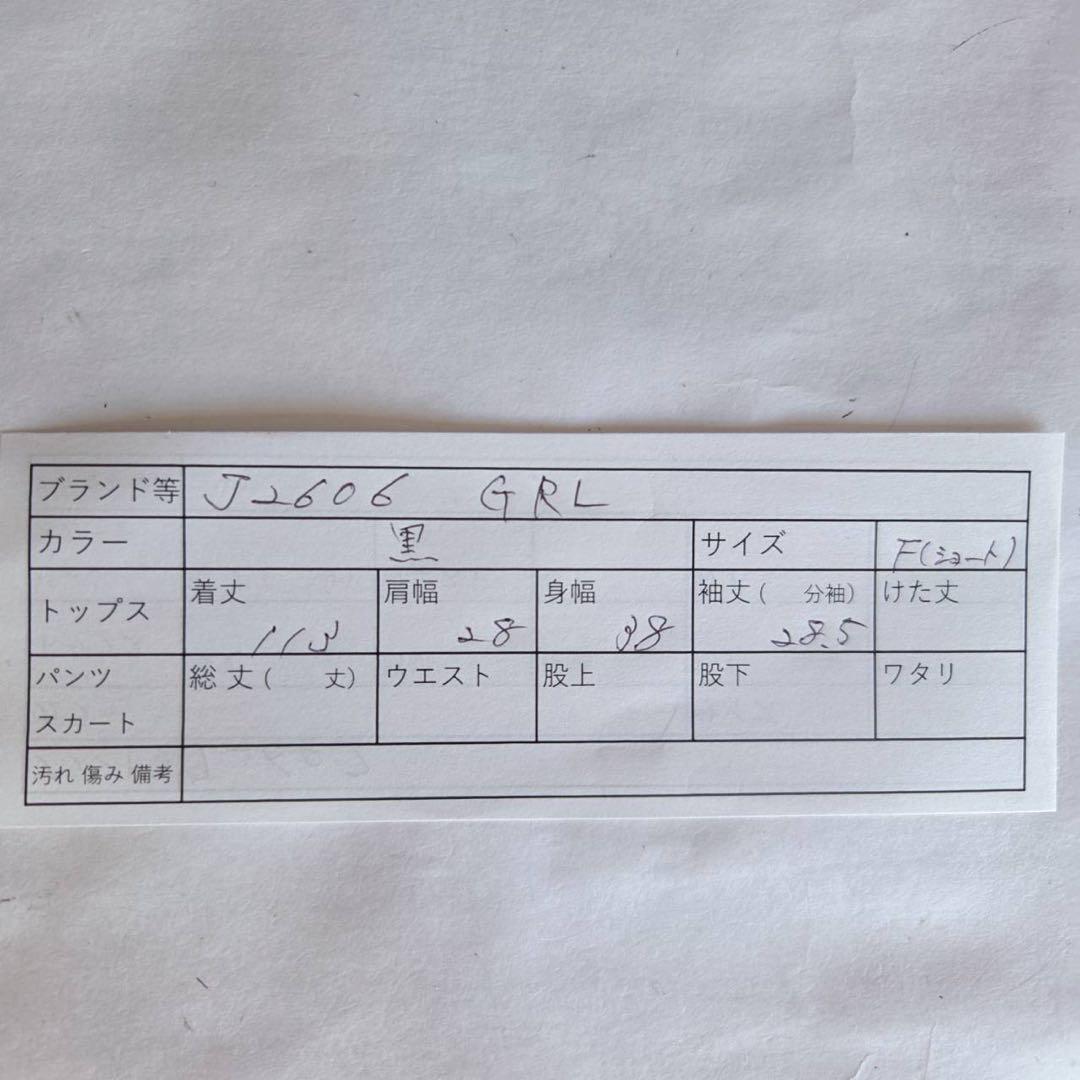 ブランド等 J2606 GRL
カラー 黒 サイズ F(ショート)
トップス 着丈 113 肩幅 28 身幅 38 袖丈( 分袖) 28.5 けた丈
パンツ スカート 総丈( 丈) ウエスト 股上 股下 ワタリ
汚れ 傷み 備考